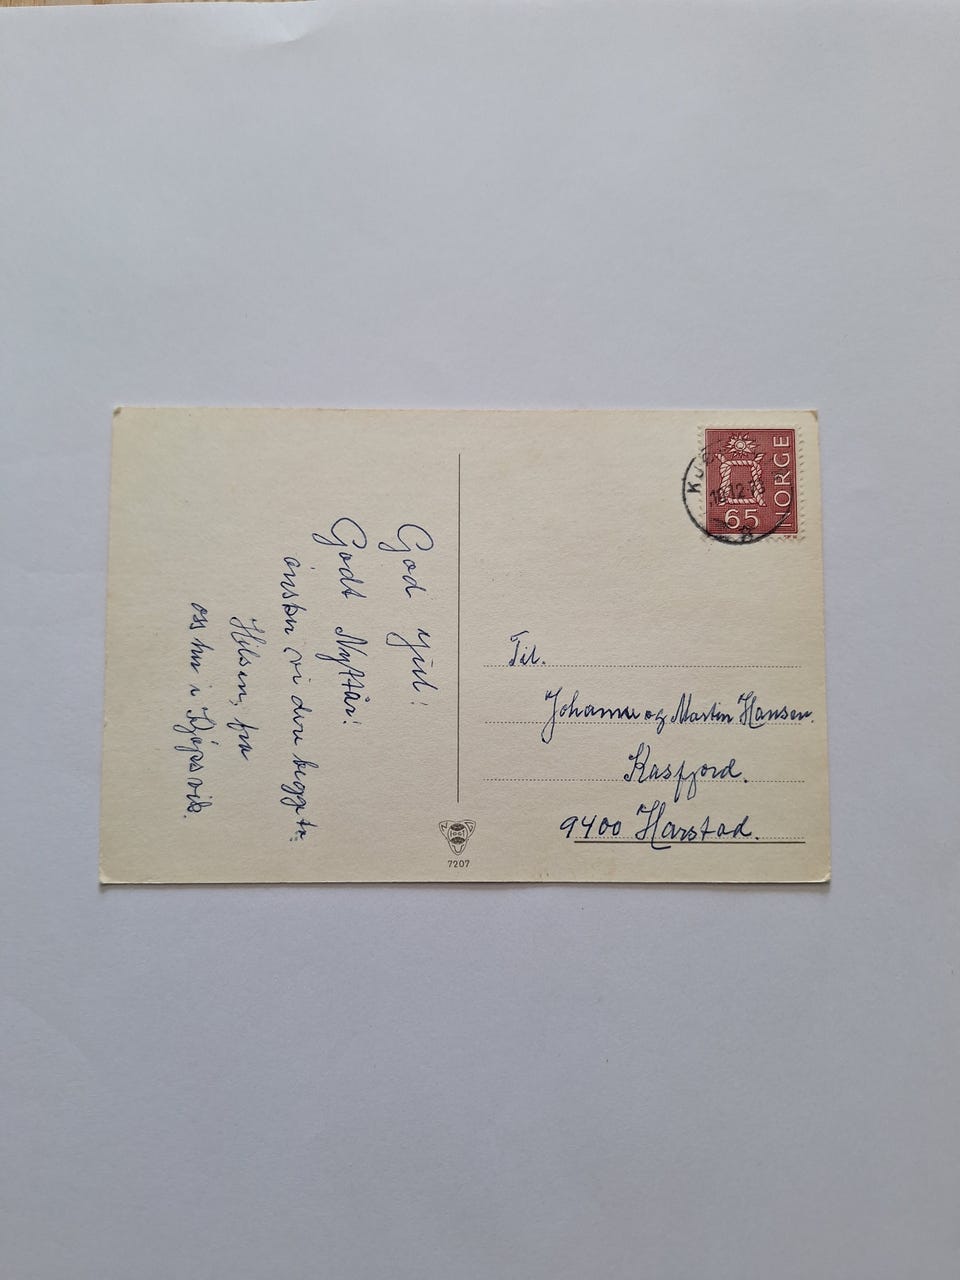 God jul!
Godt Nyttår!
ønsker vi dere begge to.
Hilsen, fra
oss her i Kjøpsvik.
NORGE
65
10.12.
Til.
Johanne og Martin Hansen.
Kasfjord.
9400 Harstad.
7207